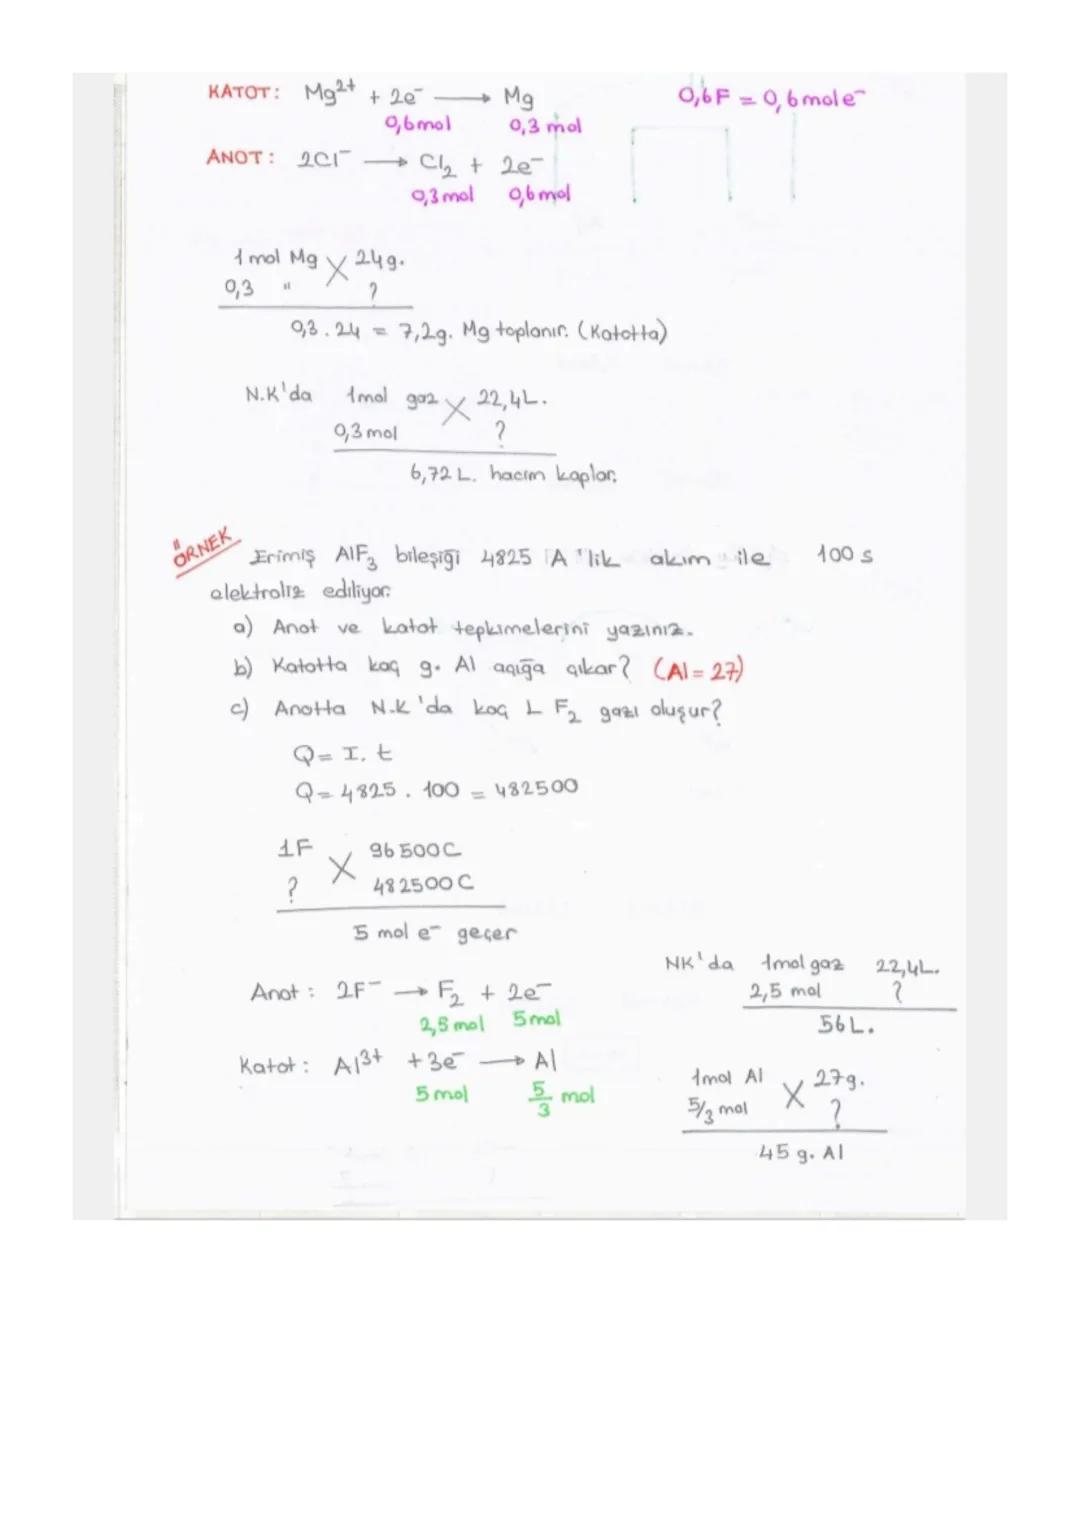 KATOT: Mg²⁺ + 2e⁻ → Mg 0,6F = 0,6 mol e⁻
0,6 mol 0,3 mol
ANOT: 2Cl⁻ → Cl₂ + 2e⁻
0,3 mol 0,6 mol
1 mol Mg 24g.
0,3 " ?
0,3 . 24 = 7,2g. Mg toplanır. (Katotta)
N.K'da 1mol gaz 22,4L.
0,3 mol ?
6,72 L. hacım kaplar.
ÖRNEK
Erimiş AlF₃ bileşiği 4825 A'lik akım ile 100 s
elektroliz ediliyor.
a) Anot ve katot tepkimelerini yazınız.
b) Katotta kaç g. Al açığa çıkar? (Al = 27)
c) Anotta N.K'da kaç L F₂ gazı oluşur?
Q = I. t
Q = 4825 . 100 = 482500
1F 96500C
? 482500C
5 mol e⁻ geçer
Anot: 2F⁻ → F₂ + 2e⁻
2,5 mol 5 mol
Katot: Al³⁺ + 3e⁻ → Al
5 mol 5/3 mol
NK'da 1mol gaz 22,4L.
2,5 mol ?
56 L.
1mol Al 27g.
5/3 mol ?
45 g. Al